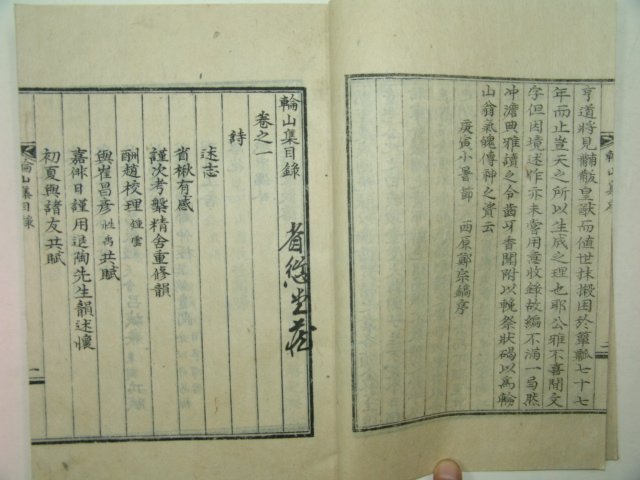 亨道將見黼黻皇猷而値世抹摋困於簞瓢七十七
年而止豈天之所以生成之理也耶公雅不喜聞文
字但因境述作亦未嘗用意收錄故編不滿一局然
冲澹典雅讀之令齒牙香聞附以輓祭狀碣以爲輪
山翁氣魄傳神之資云
庚寅小暑節 西原鄭宗鎬序
輪山集序
二
輪山集目錄
卷之一
詩
述志
省楸有感
謹次考槃精舍重修韻
酬趙校理
與崔昌彦 共賦
嘉俳日謹用退陶先生韻述懷
初夏與諸友共賦
輪山集目錄
一